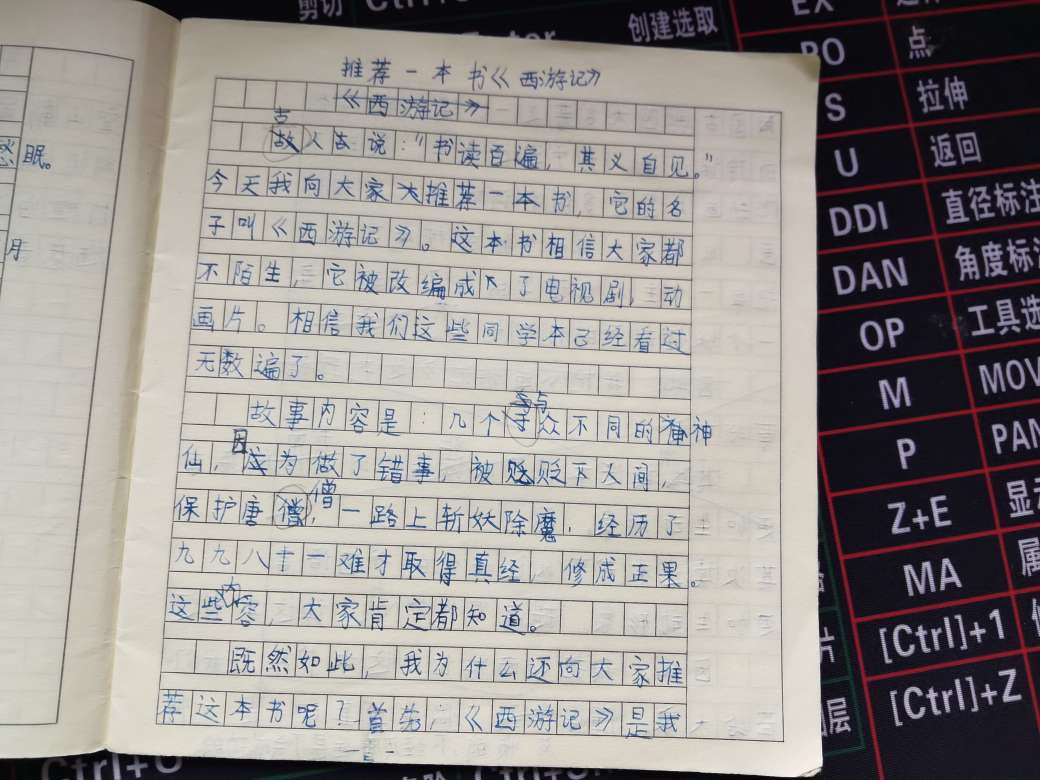 剪切
创建选取
EX
PO
点
S
拉伸
U
返回
DDI
直径标注
DAN
角度标
OP
工具选
M
MOV
P
PAN
Z+E
显示
MA
属
[Ctrl]+1
[Ctrl]+Z
图层
眠。
月
推荐一本书《西游记》
《西游记》
古
故人去说："书读百遍，其义自见。"
今天我向大家大推荐一本书，它的名
子叫《西游记》。这本书相信大家都
不陌生，它被改编成了电视剧，动
画片。相信我们这些同学本已经看过
无数遍了。
故事内容是：几个众不同的神
仙，因为做了错事，被贬下人间，
保护唐僧，一路上斩妖除魔，经历了
九九八十一难才取得真经，修成正果。
这些内容，大家肯定都知道。
既然如此，我为什么还向大家推
荐这本书呢？首先，《西游记》是我